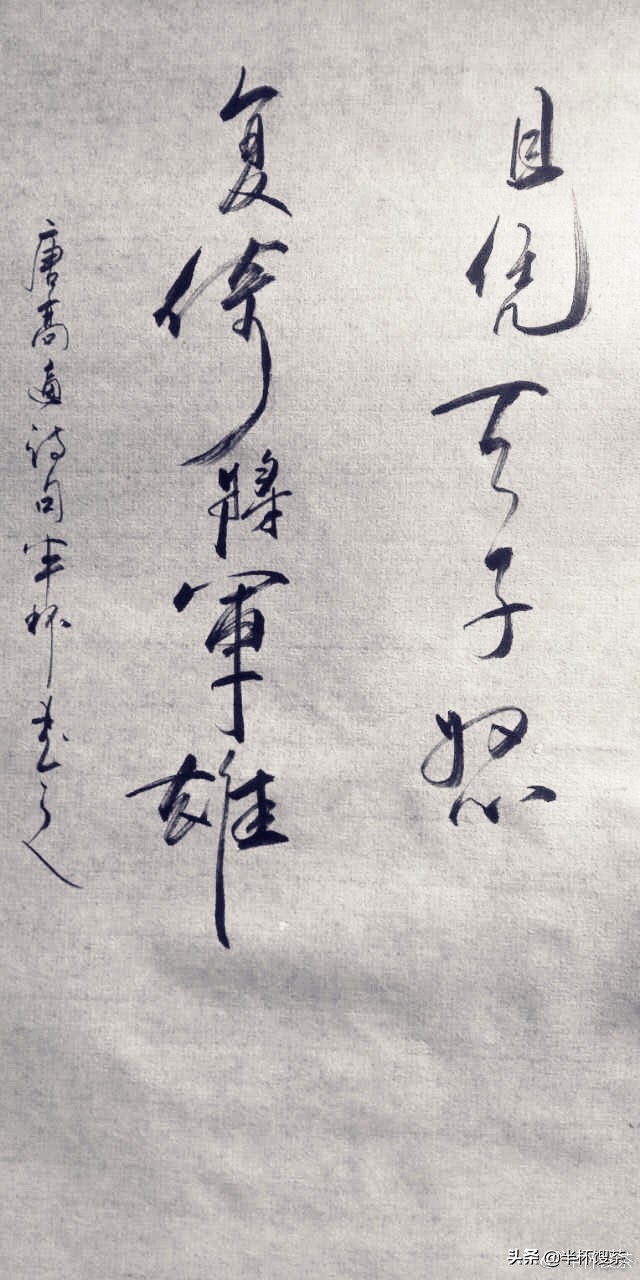 且凭天子怒
复倚将军雄
唐高适诗句半杯书之
头条 @半杯馊茶